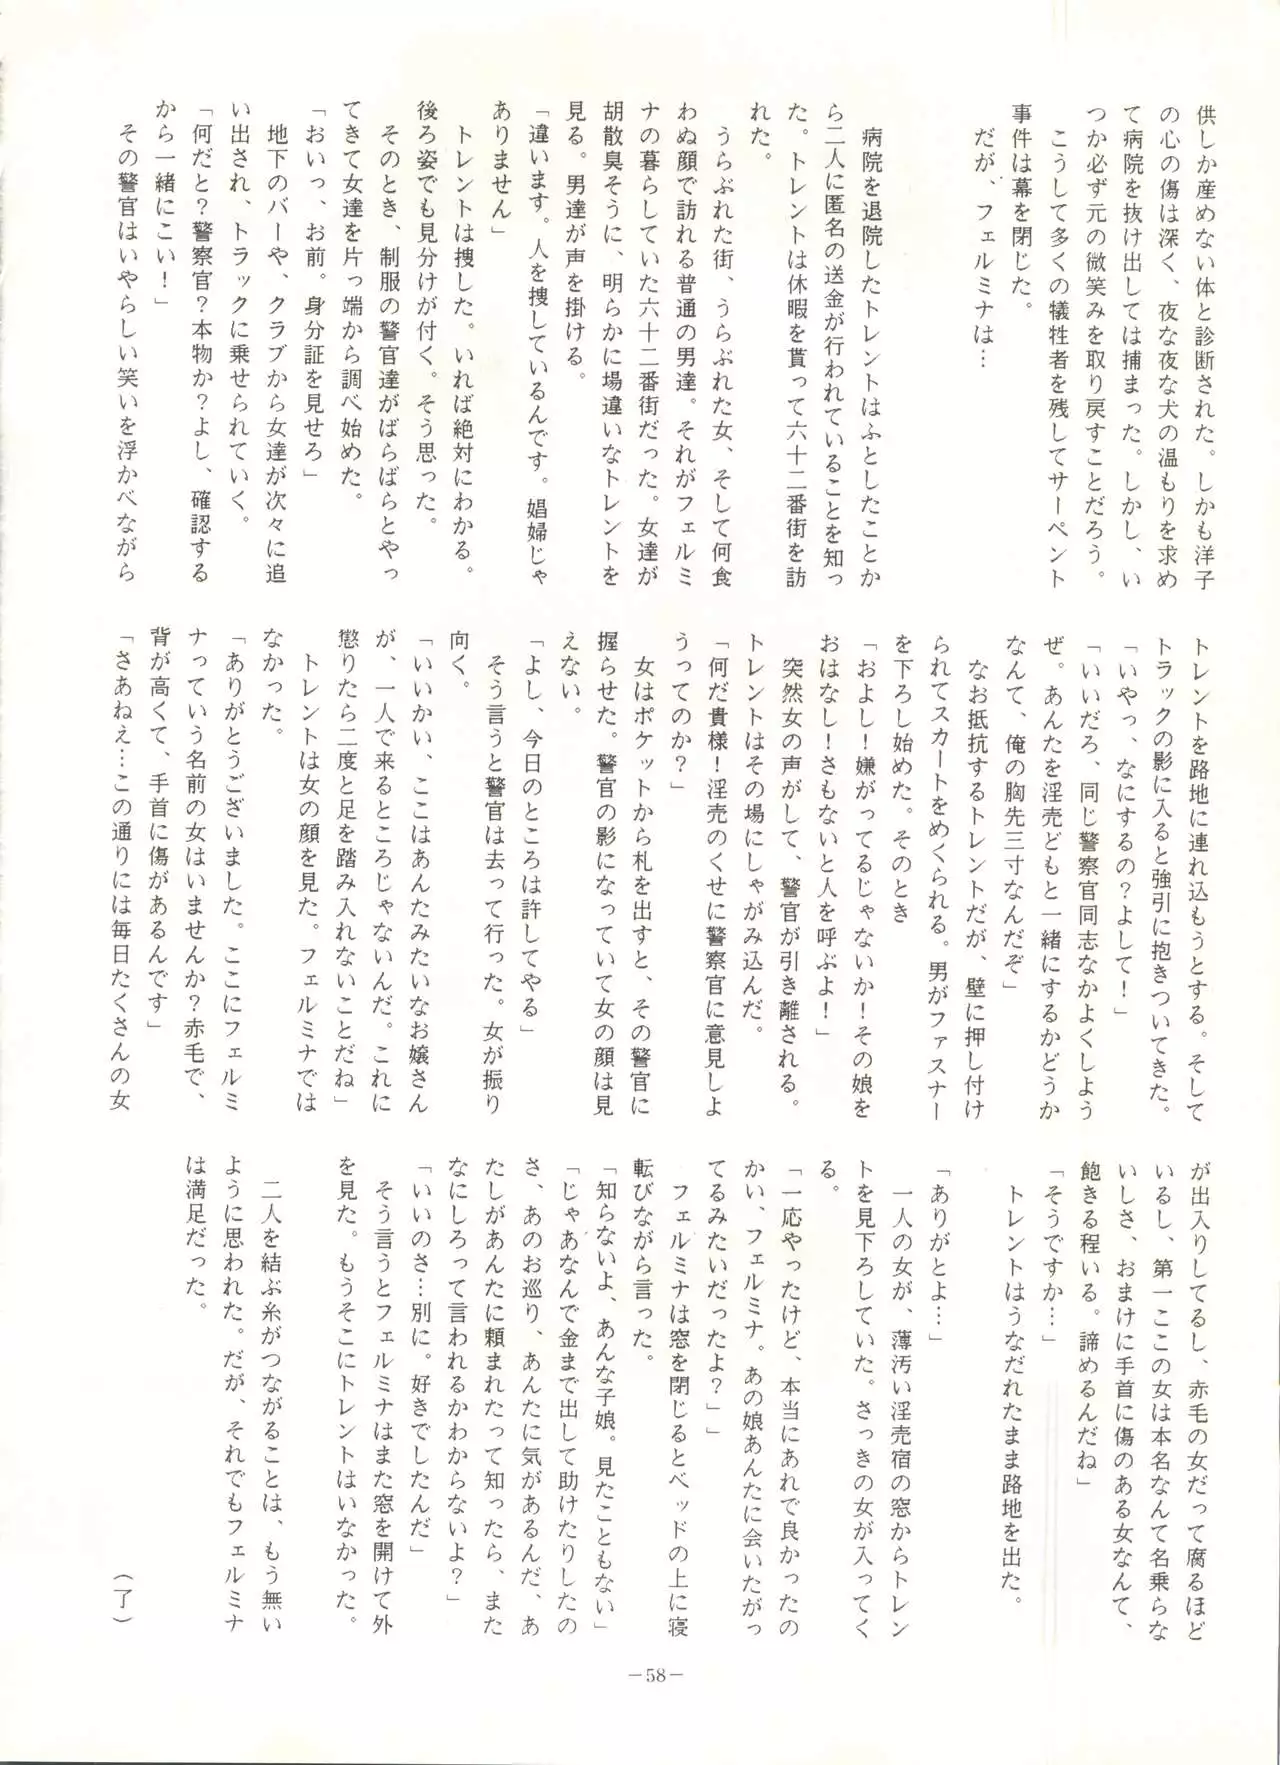 供しか産めない体と診断された。しかも洋子
の心の傷は深く、夜な夜な犬の温もりを求め
て病院を抜け出しては捕まった。しかし、い
つか必ず元の微笑みを取り戻すことだろう。
　こうして多くの犠牲者を残してサーペント
事件は幕を閉じた。
　だが、フェルミナは…
　病院を退院したトレントはふとしたことか
ら二人に匿名の送金が行われていることを知っ
た。トレントは休暇を貰って六十二番街を訪
れた。
　うらぶれた街、うらぶれた女、そして何食
わぬ顔で訪れる普通の男達。それがフェルミ
ナの暮らしていた六十二番街だった。女達が
胡散臭そうに、明らかに場違いなトレントを
見る。男達が声を掛ける。
「違います。人を捜しているんです。娼婦じゃ
ありません」
　トレントは捜した。いれば絶対にわかる。
後ろ姿でも見分けが付く。そう思った。
　そのとき、制服の警官達がばらばらとやっ
てきて女達を片っ端から調べ始めた。
「おいっ、お前。身分証を見せろ」
　地下のバーや、クラブから女達が次々に追
い出され、トラックに乗せられていく。
「何だと？警察官？本物か？よし、確認する
から一緒にこい！」
　その警官はいやらしい笑いを浮かべながら
トレントを路地に連れ込もうとする。そして
トラックの影に入ると強引に抱きついてきた。
「いやっ、なにするの？よして！」
「いいだろ、同じ警察官同志なかよくしよう
ぜ。あんたを淫売どもと一緒にするかどうか
なんて、俺の胸先三寸なんだぞ」
　なお抵抗するトレントだが、壁に押し付け
られてスカートをめくられる。男がファスナー
を下ろし始めた。そのとき
「およし！嫌がってるじゃないか！その娘を
おはなし！さもないと人を呼ぶよ！」
　突然女の声がして、警官が引き離される。
トレントはその場にしゃがみ込んだ。
「何だ貴様！淫売のくせに警察官に意見しよ
うってのか？」
　女はポケットから札を出すと、その警官に
握らせた。警官の影になっていて女の顔は見
えない。
「よし、今日のところは許してやる」
　そう言うと警官は去って行った。女が振り
向く。
「いいかい、ここはあんたみたいなお嬢さん
が、一人で来るところじゃないんだ。これに
懲りたら二度と足を踏み入れないことだね」
　トレントは女の顔を見た。フェルミナでは
なかった。
「ありがとうございました。ここにフェルミ
ナっていう名前の女はいませんか？赤毛で、
背が高くて、手首に傷があるんです」
「さあねえ…この通りには毎日たくさんの女
が出入りしてるし、赤毛の女だって腐るほど
いるし、第一ここの女は本名なんて名乗らな
いしさ、おまけに手首に傷のある女なんて、
飽きる程いる。諦めるんだね」
「そうですか…」
　トレントはうなだれたまま路地を出た。
「ありがとよ…」
　一人の女が、薄汚い淫売宿の窓からトレン
トを見下ろしていた。さっきの女が入ってく
る。
「一応やったけど、本当にあれで良かったの
かい、フェルミナ。あの娘あんたに会いたがっ
てるみたいだったよ？」」
　フェルミナは窓を閉じるとベッドの上に寝
転びながら言った。
「知らないよ、あんな子娘。見たこともない」
「じゃあなんで金まで出して助けたりしたの
さ、あのお巡り、あんたに気があるんだ、あ
たしがあんたに頼まれたって知ったら、また
なにしろって言われるかわからないよ？」
「いいのさ…別に。好きでしたんだ」
　そう言うとフェルミナはまた窓を開けて外
を見た。もうそこにトレントはいなかった。
　二人を結ぶ糸がつながることは、もう無い
ように思われた。だが、それでもフェルミナ
は満足だった。
（了）
－58－